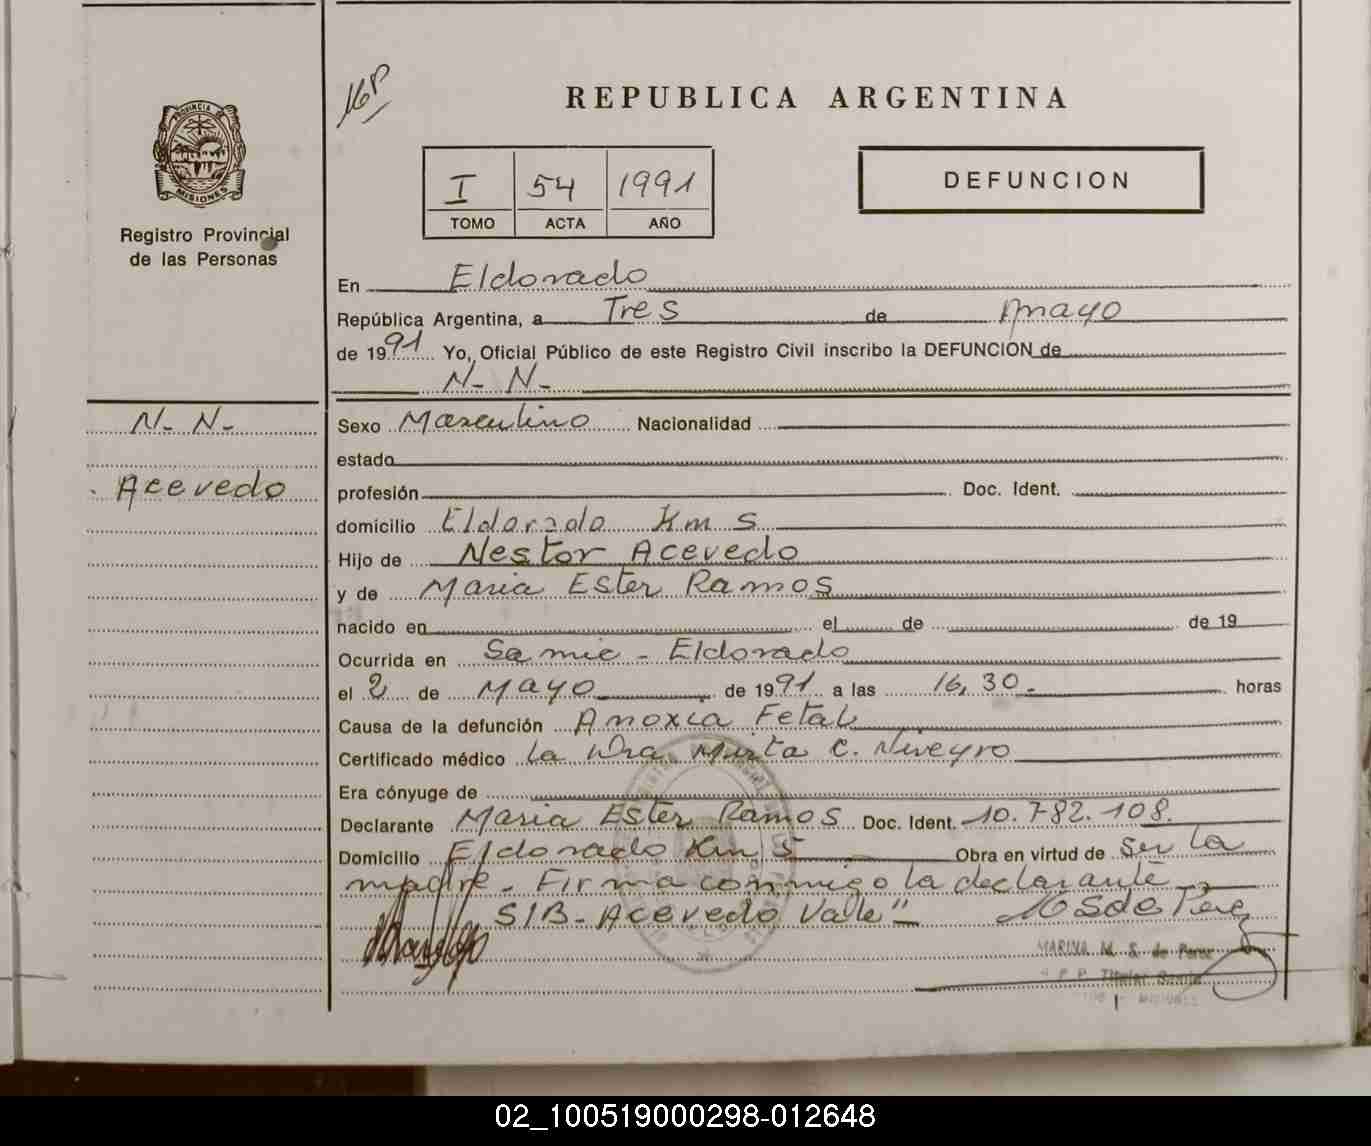 168
REPUBLICA ARGENTINA
PROVINCIA DE
MISIONES
Registro Provincial
de las Personas
I 54 1991
TOMO ACTA AÑO
DEFUNCION
En Eldorado
República Argentina, a Tres de mayo
de 1991 Yo, Oficial Público de este Registro Civil inscribo la DEFUNCION de
N- N-
N- N-
Acevedo
Sexo Masculino Nacionalidad
estado
profesión Doc. Ident.
domicilio Eldorado Km 5
Hijo de Nestor Acevedo
y de Maria Ester Ramos
nacido en el de de 19
Ocurrida en Samic - Eldorado
el 2 de Mayo de 1991 a las 16,30. horas
Causa de la defunción Anoxia Fetal
Certificado médico La Dra Mirta C. Niveyro
Era cónyuge de
Declarante Maria Ester Ramos Doc. Ident. 10.782.108.
Domicilio Eldorado Km 5 Obra en virtud de ser la
madre. Firma conmigo la declarante
S/B- Acevedo Vale" MSde Perez
MARINA M. S. de Perez
Titular
MISIONES
02_100519000298-012648